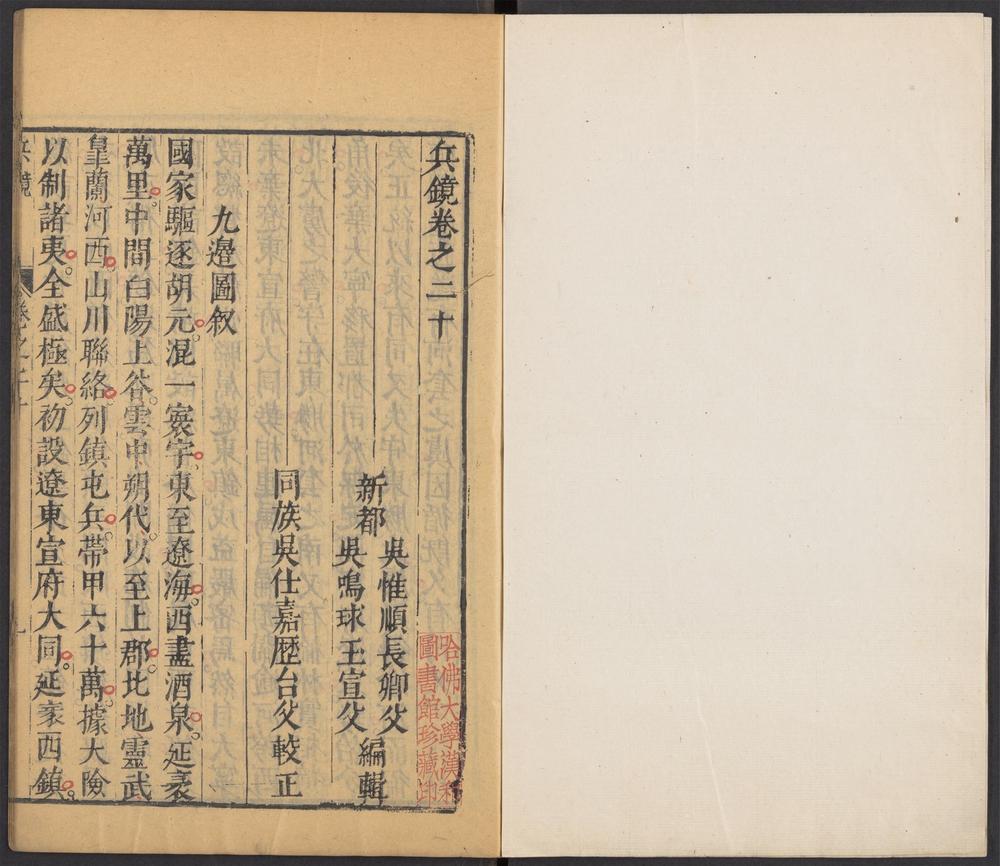 兵鏡卷之二十
新都
吳惟順長卿父
吳鳴球玉宣父
編輯
同族吳仕嘉歷台父較正
九邊圖叙
國家驅逐胡元。混一寰宇。東至遼海。西盡酒泉。延袤
萬里。中間白陽上谷。雲中朔代。以至上郡。北地靈武
皐蘭河西。山川聯絡。列鎮屯兵。帶甲六十萬。據大險
以制諸夷。全盛極矣。初設遼東宣府大同。延袤四鎮。
兵鏡
卷之二十
一
哈佛大學漢和
圖書館珍藏印